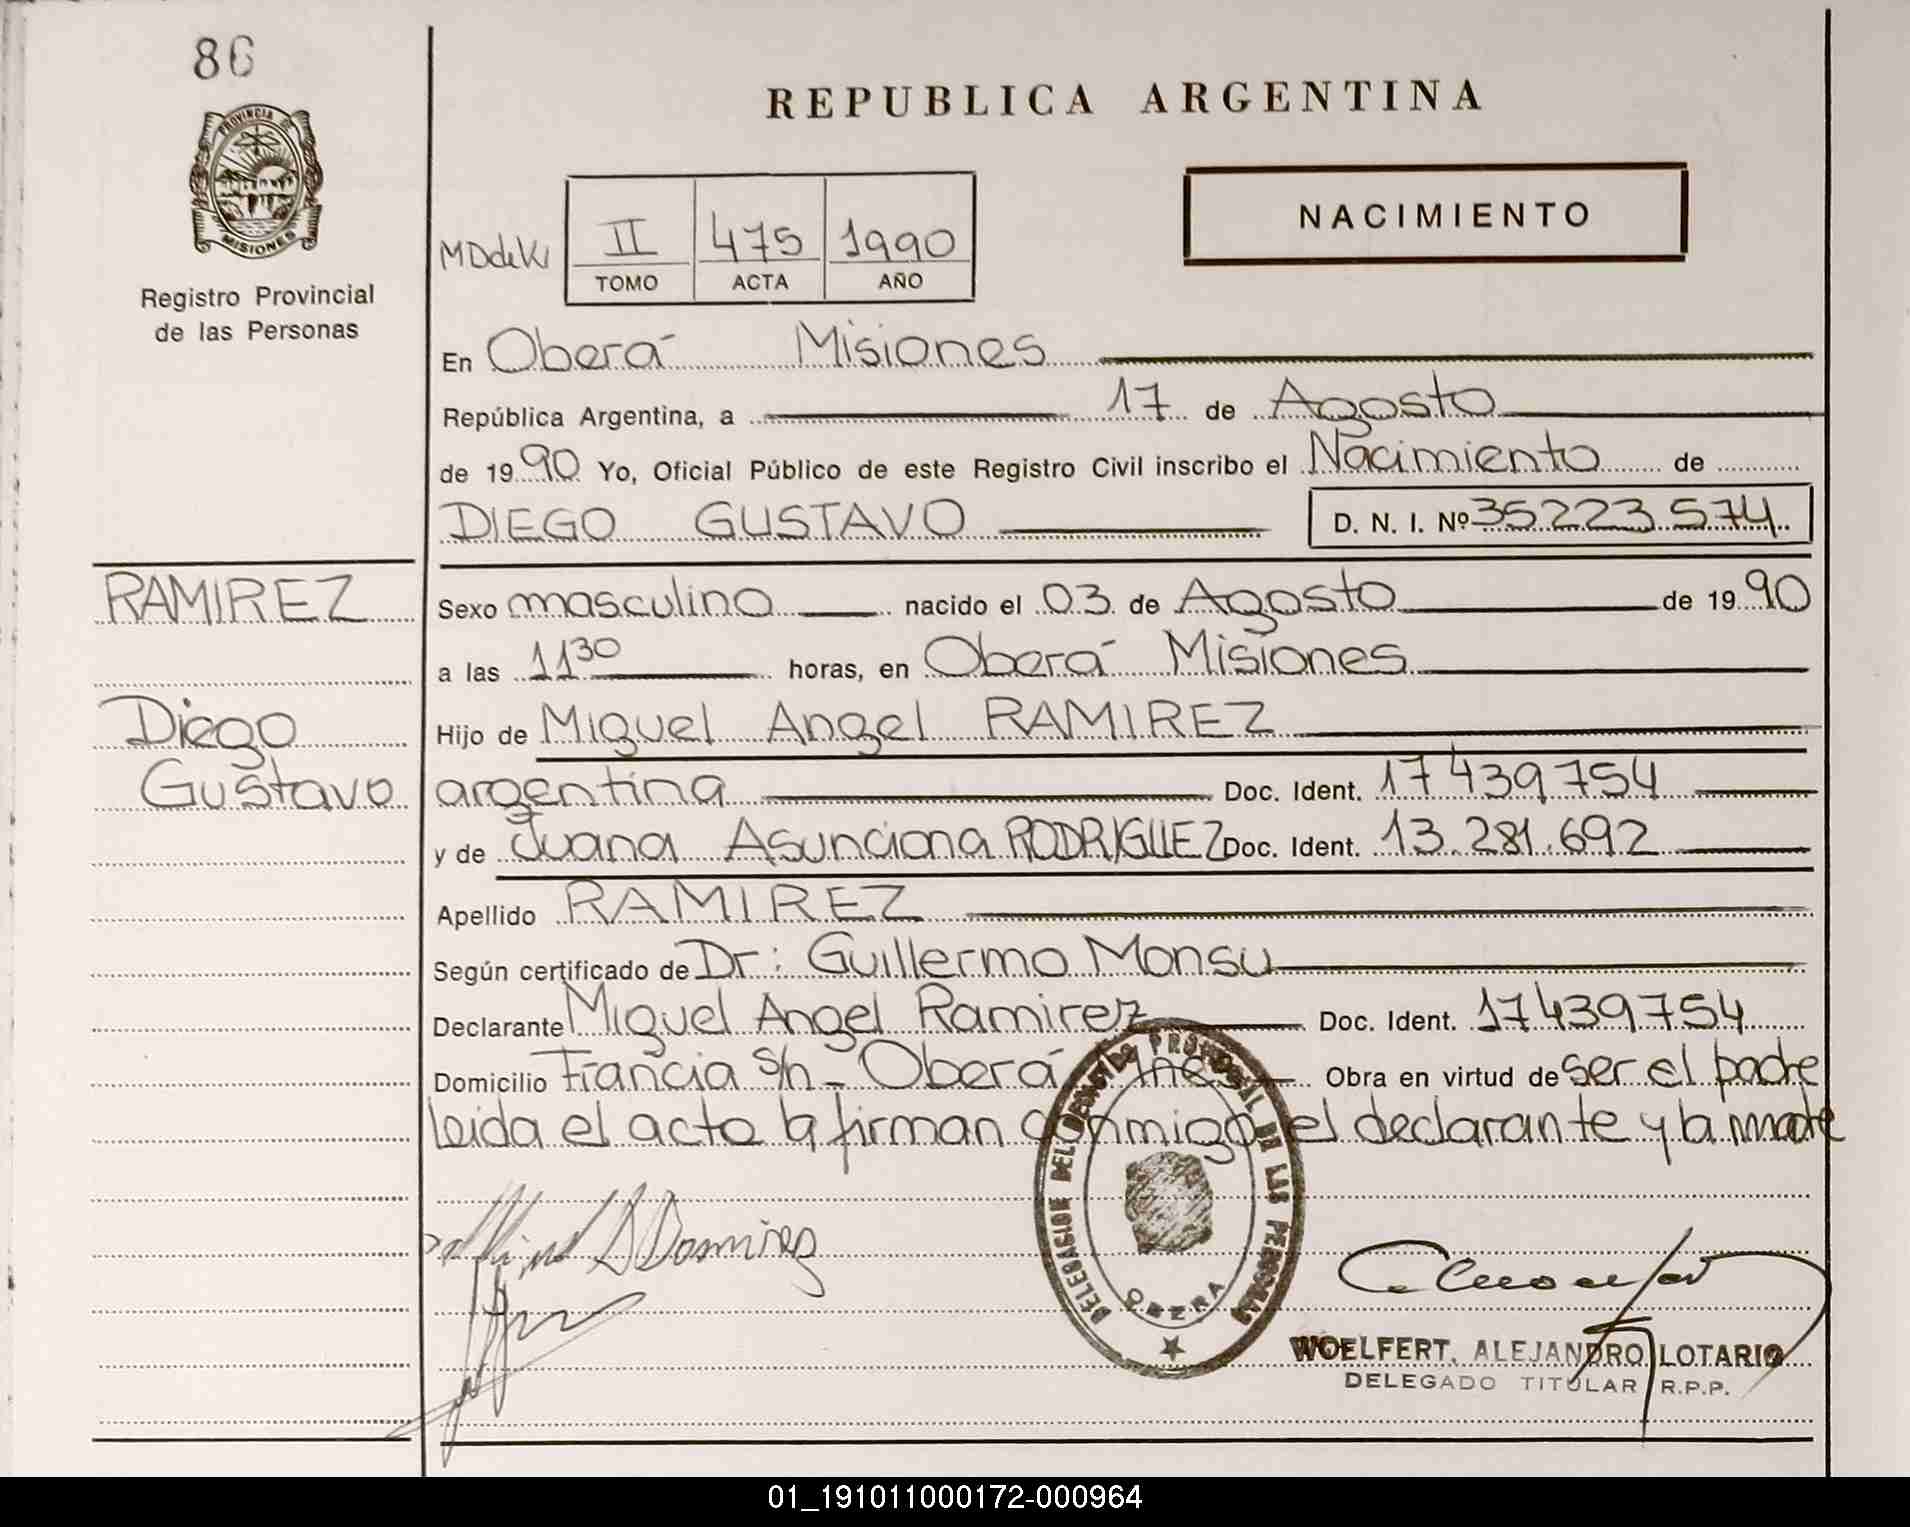 86
PROVINCIA DE
MISIONES
Registro Provincial
de las Personas
REPUBLICA ARGENTINA
NACIMIENTO
II 475 1990
TOMO ACTA AÑO
En Oberá Misiones
República Argentina, a 17 de Agosto
de 1990 Yo, Oficial Público de este Registro Civil inscribo el Nacimiento de
DIEGO GUSTAVO D. N. I. Nº 35223574
RAMIREZ
Diego
Gustavo
Sexo masculino nacido el 03 de Agosto de 1990
a las 11 30 horas, en Oberá Misiones
Hijo de Miguel Angel RAMIREZ
argentina Doc. Ident. 17439754
y de Juana Asunciona RODRIGUEZ Doc. Ident. 13.281.692
Apellido RAMIREZ
Según certificado de Dr: Guillermo Monsu
Declarante Miguel Angel Ramirez Doc. Ident. 17439754
Domicilio Francia s/n - Oberá Mnes Obra en virtud de ser el padre
leida el acto la firman conmigo el declarante y la madre
DELEGACION DEL REGISTRO PROVINCIAL DE LAS PERSONAS
OBERA
WOELFERT, ALEJANDRO LOTARIO
DELEGADO TITULAR R.P.P.
01_191011000172-000964